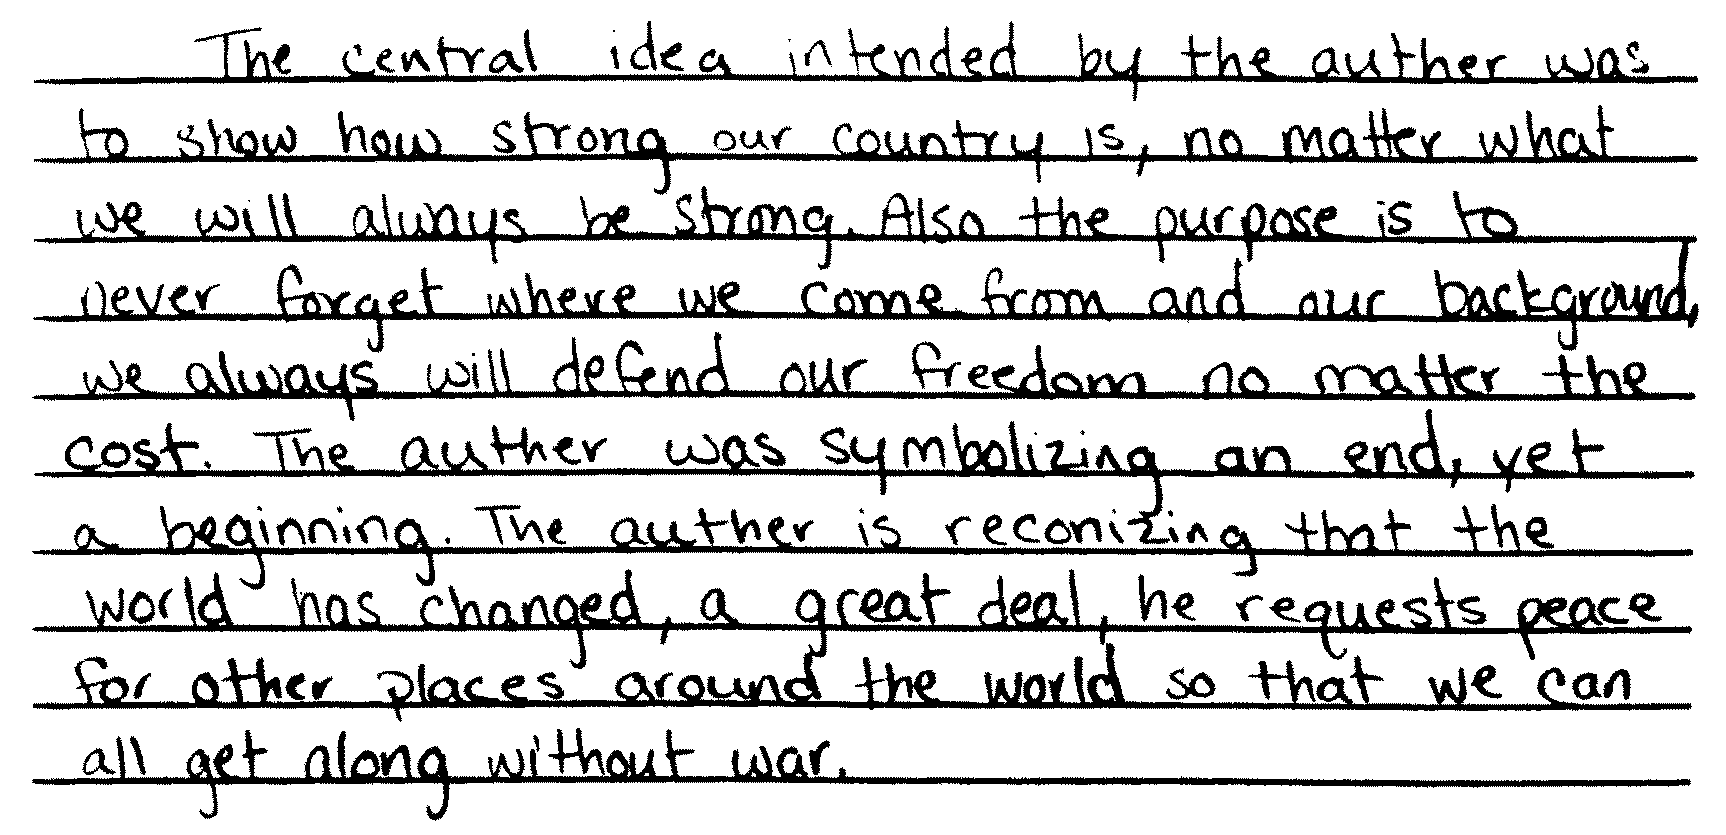 The central idea intended by the auther was
to show how strong our country is, no matter what
we will always be strong. Also the purpose is to
never forget where we come from and our background,
we always will defend our freedom no matter the
cost. The auther was symbolizing an end, yet
a beginning. The auther is reconizing that the
world has changed, a great deal, he requests peace
for other places around the world so that we can
all get along without war.